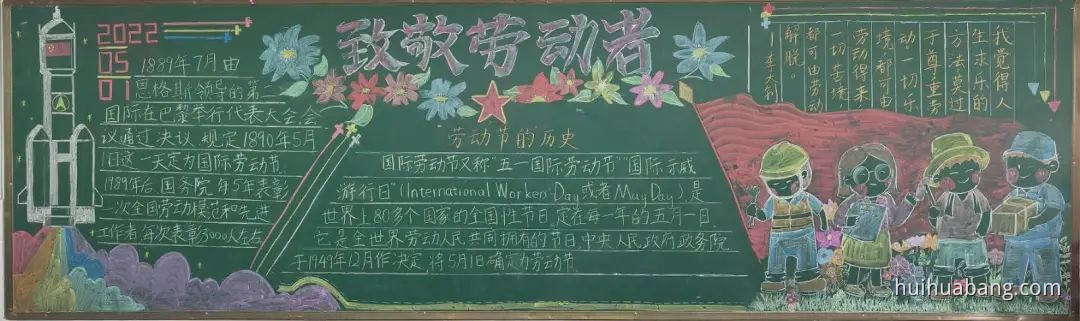 2022
05
01
致敬劳动者
1889年7月由
恩格斯领导的第二
国际在巴黎举行代表大会,会
议通过决议,规定1890年5月
1日这一天定为国际劳动节.
1989年后,国务院每5年表彰
一次全国劳动模范和先进
工作者,每次表彰3000人左右
劳动节的历史
国际劳动节又称“五一国际劳动节”“国际示威
游行日”(International Workers' Day或者May Day),是
世界上80多个国家的全国性节日.定在每一年的五月一日.
它是全世界劳动人民共同拥有的节日.中央人民政府政务院
于1949年12月作决定,将5月1日确定为劳动节.
我觉得人
生求乐的
方法莫过
于尊重劳
动一切乐
境都可由
劳动得来
一切苦境
都可由劳动
解脱。
李大钊
huihuabang.com